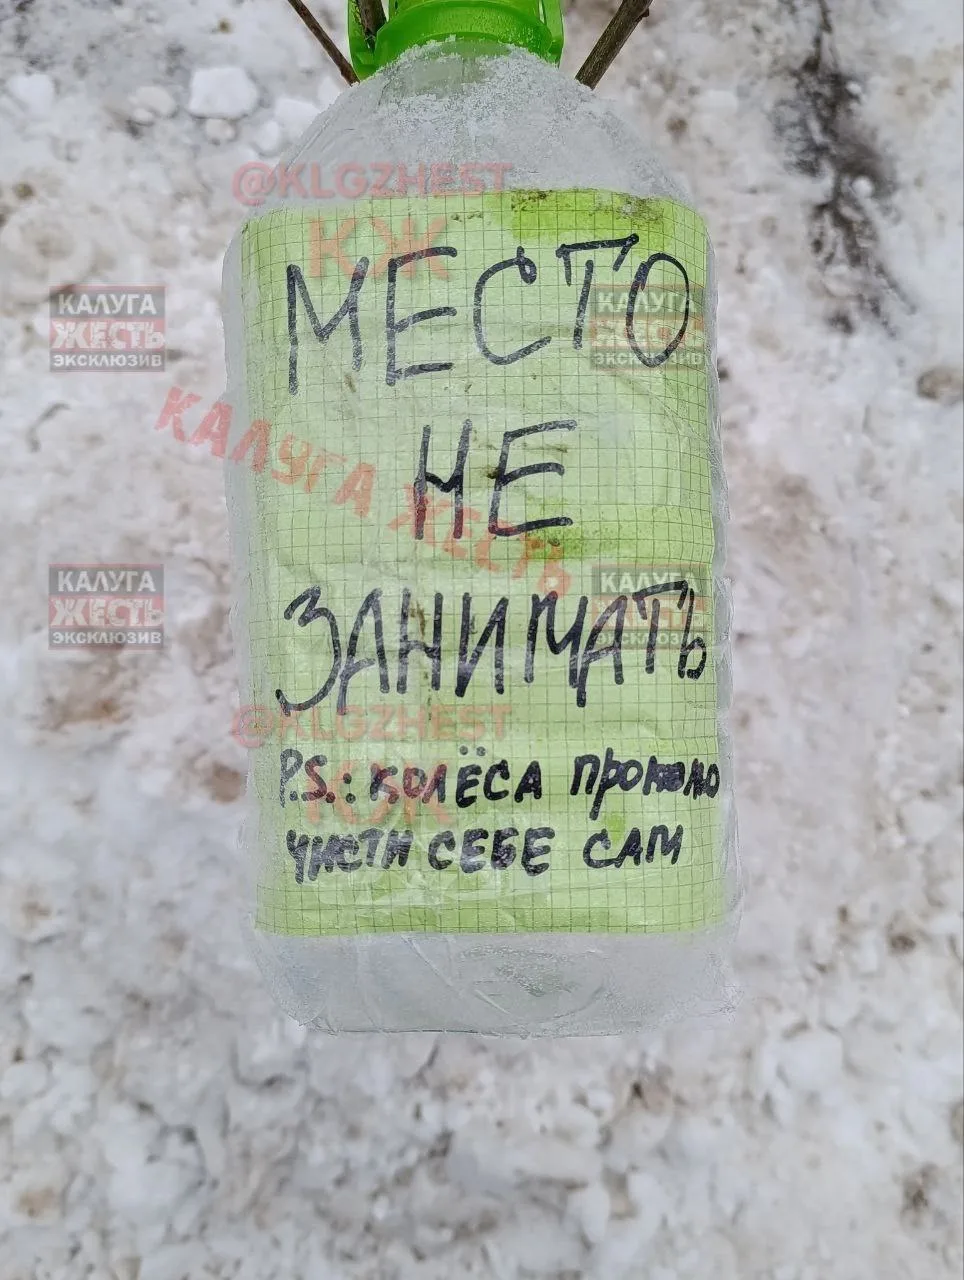 @KLGZHEST
КЖ
МЕСТО
КАЛУГА
ЖЕСТЬ
ЭКСКЛЮЗИВ
КАЛУГА
ЖЕСТЬ
ЭКСКЛЮЗИВ
КАЛУГА ЖЕСТЬ
НЕ
КАЛУГА
ЖЕСТЬ
ЭКСКЛЮЗИВ
КАЛУГА
ЖЕСТЬ
ЭКСКЛЮЗИВ
ЗАНИМАТЬ
@KLGZHEST
КЖ
P.S.: КОЛЁСА ПРОКОЛЮ
ЧИСТИ СЕБЕ САМ